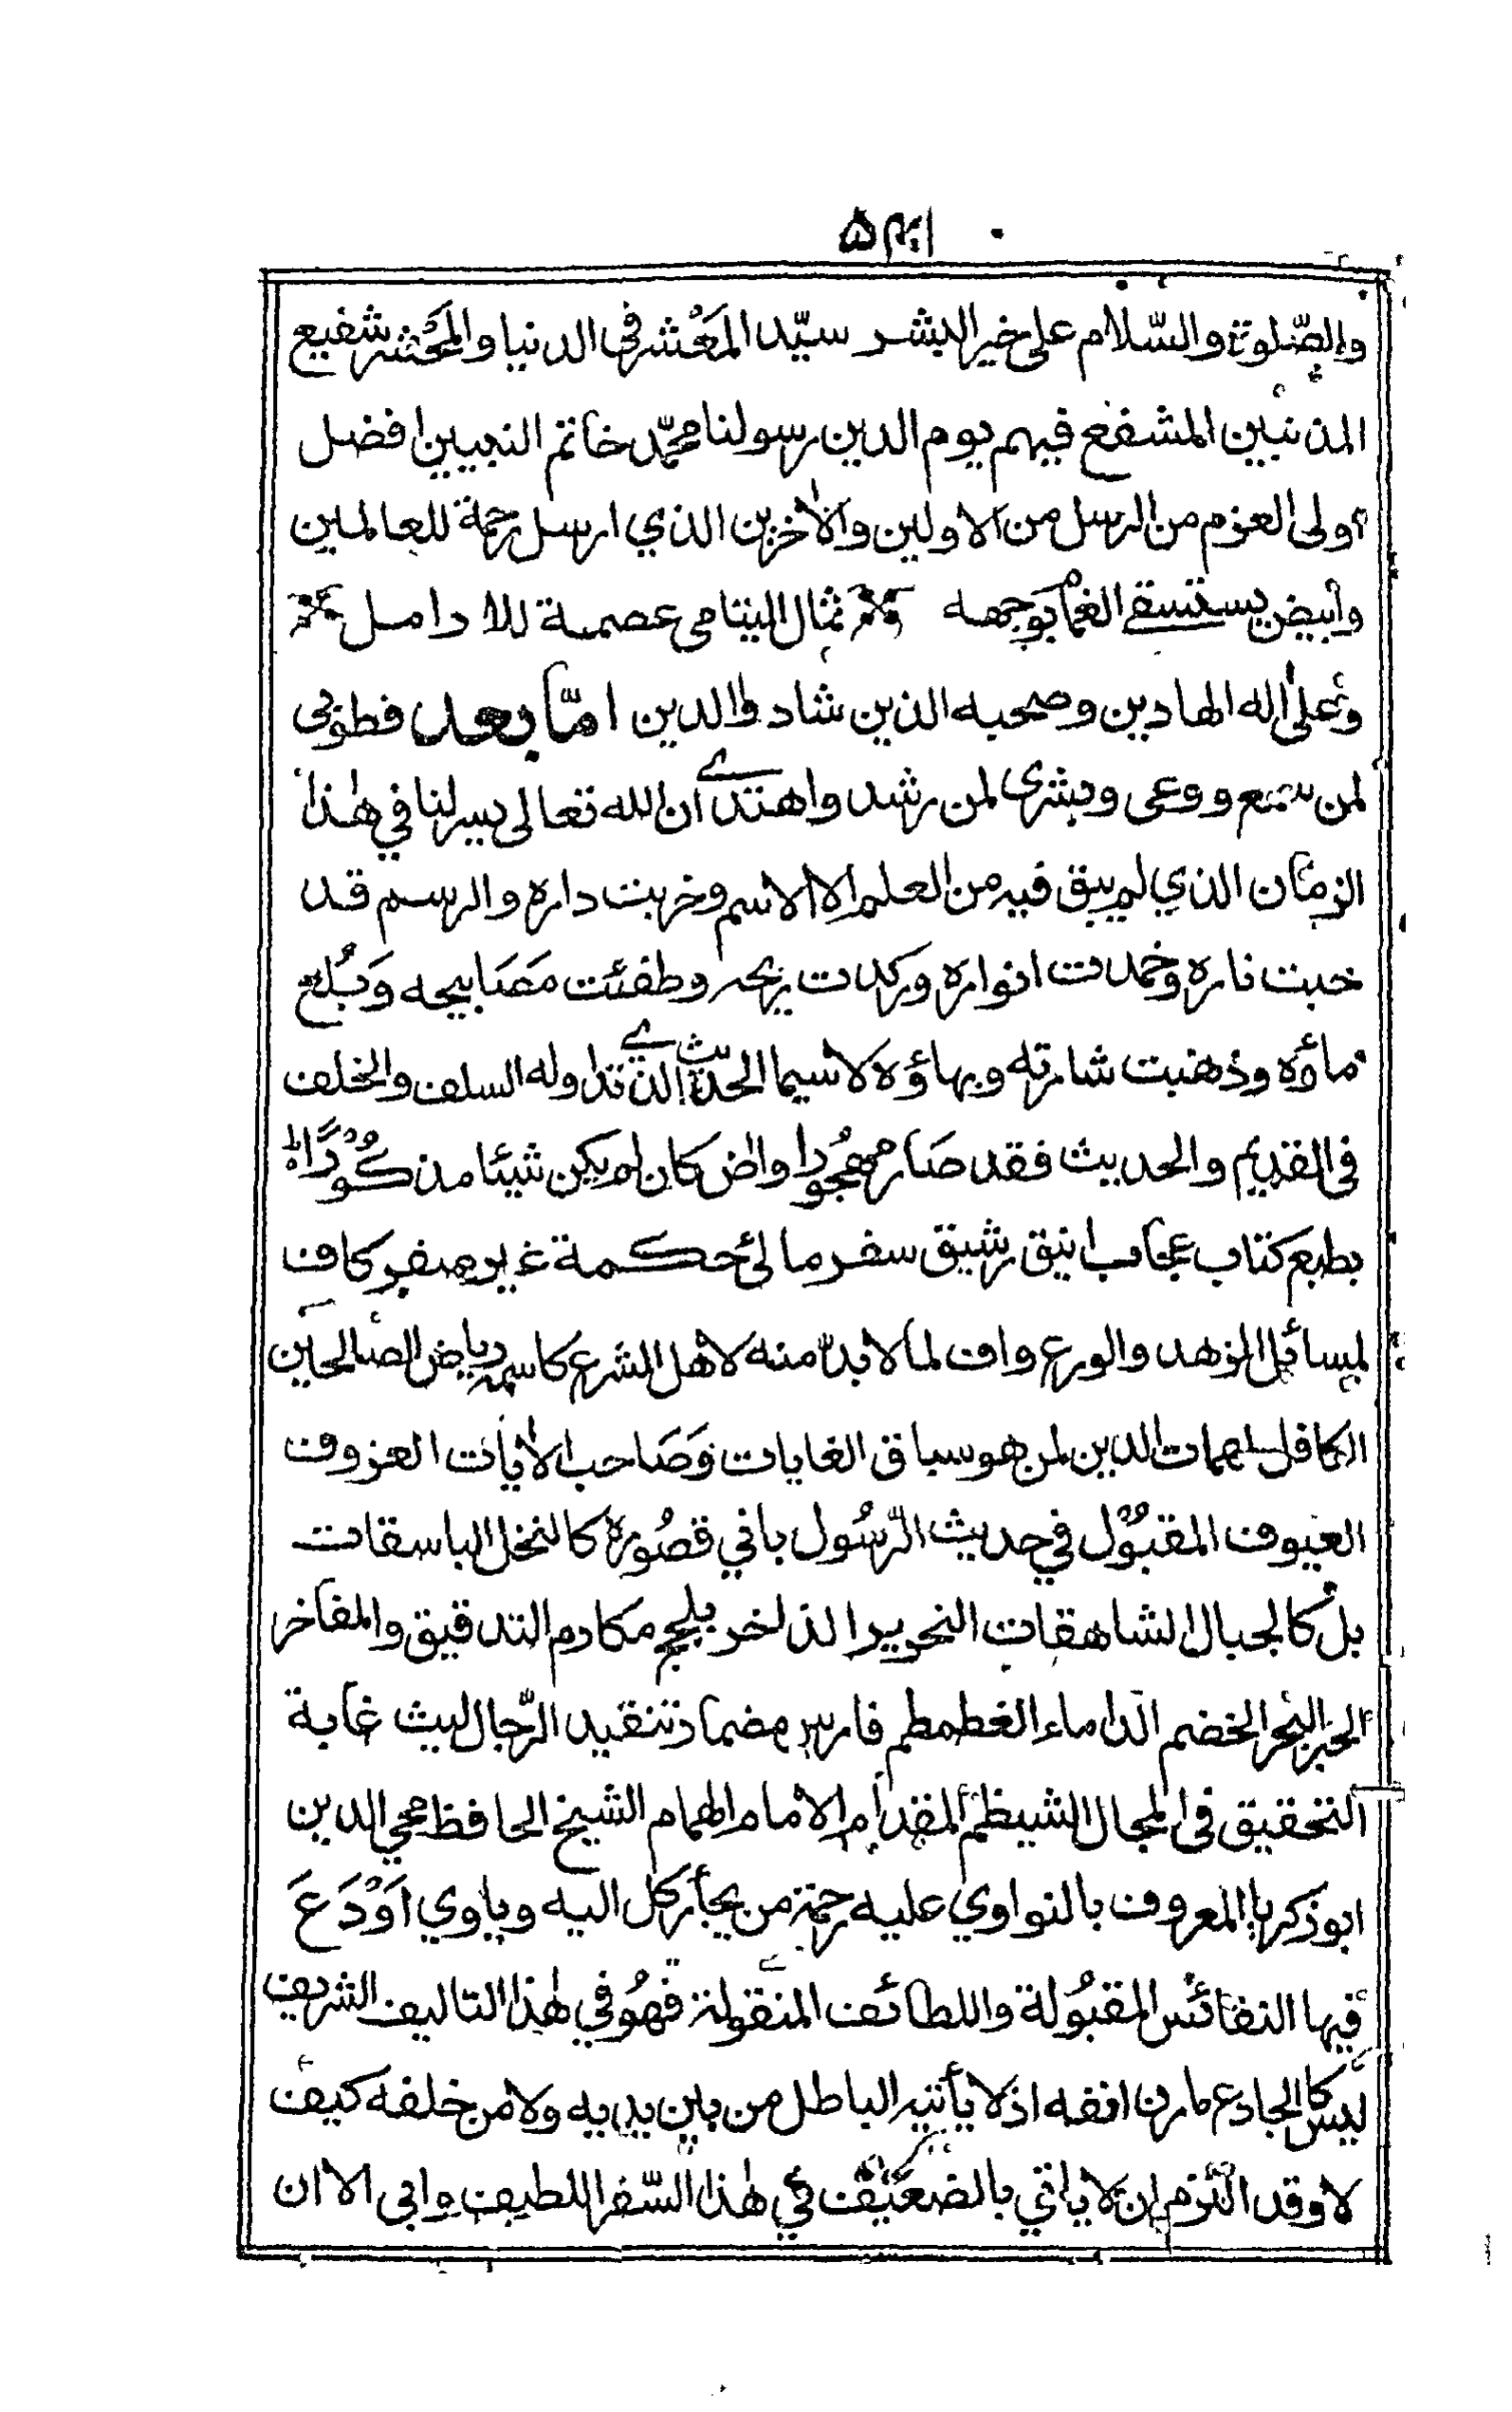 ۵۴۱
والصّلوة والسّلام على خير البشر سيّد المَعْشر في الدنيا والمَحْشر شفيع
المذنبين المشفع فيهم يوم الدين رسولنا محمّد خاتم النبيين افضل
اولى العزم من الرسل من الاولين والأخرين الذي ارسل رحمة للعالمين
وابيض يستسقے الغمام بوجهه ثمال اليتامى عصمة للارامل
وعلى اله الهادين وصحبه الذين شادوا الدين امّا بعد فطوبى
لمن سمع ووعى وبشرى لمن رشد واهتدے ان الله تعالى يسر لنا في هذا
الزمان الذي لم يبق فيه من العلم الا الاسم وخربت داره والرسم قد
خبت ناره وخمدت انواره وركدت ريحه وطفئت مصَابيحه وَبُلع
ماؤه وذهبت شارته وبهاؤه لاسيما الحديث الذے تداوله السلف والخلف
فى القديم والحديث فقد صَار مهجُورا واض كان لم يكن شيئا مذكُورًا
بطبع كتاب عجاب انيق رشيق سفر مالئ حكمة غير صفر كاف
لمسائل الزهد والورع واف لما لابدّ منه لاهل الشرع كاسمه رياض الصالحين
الكافل لمهمات الدين لمن هو سباق الغايات وَصَاحب الأيات العزوف
العيوف المقبُول في حديث الرّسُول باني قصُوره كالنخل الباسقات
بل كالجبال الشاهقات النحرير الذاخر بلجج مكارم التدقيق والمفاخر
الحبر البحر الخضم الداماء الغطمطم فارس مضمار تنقيد الرّجال ليث غابة
التحقيق فى المجال الشيظم المقدام الامام الهمام الشيخ الحافظ محي الدين
ابو زكريا المعروف بالنواوي عليه رحمة من يجأر كل اليه وياوي اَوْدَعَ
فيها النفائس المقبُولة واللطائف المنقولة فهُو في هذا التاليف الشريف
ليس كالجادع مارن انفه اذ لا يأتيه الباطل من بين يديه ولا من خلفه كيف
لا وقد التزم ان لا ياتي بالضعيف في هذا السّفر اللطيف وابى الا ان